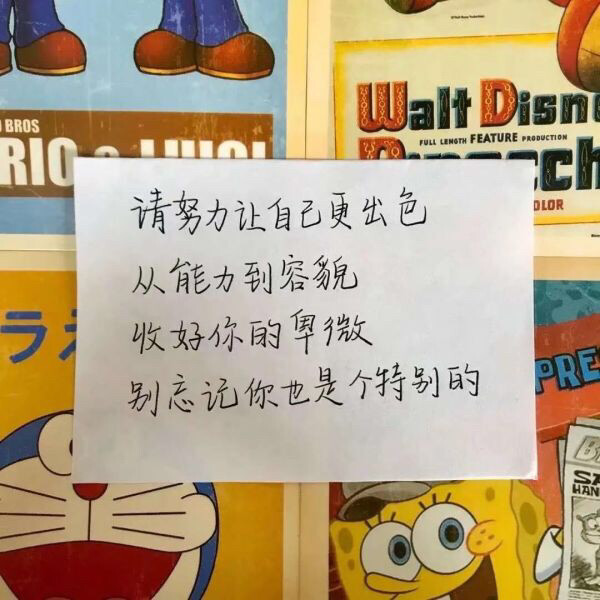 BROS
RIO & LUIGI
Walt Disn
FULL LENGTH FEATURE PRODUCTION
OLOR
请努力让自己更出色
从能力到容貌
收好你的卑微
别忘记你也是个特别的
ラえ
PRE
SA
HAN